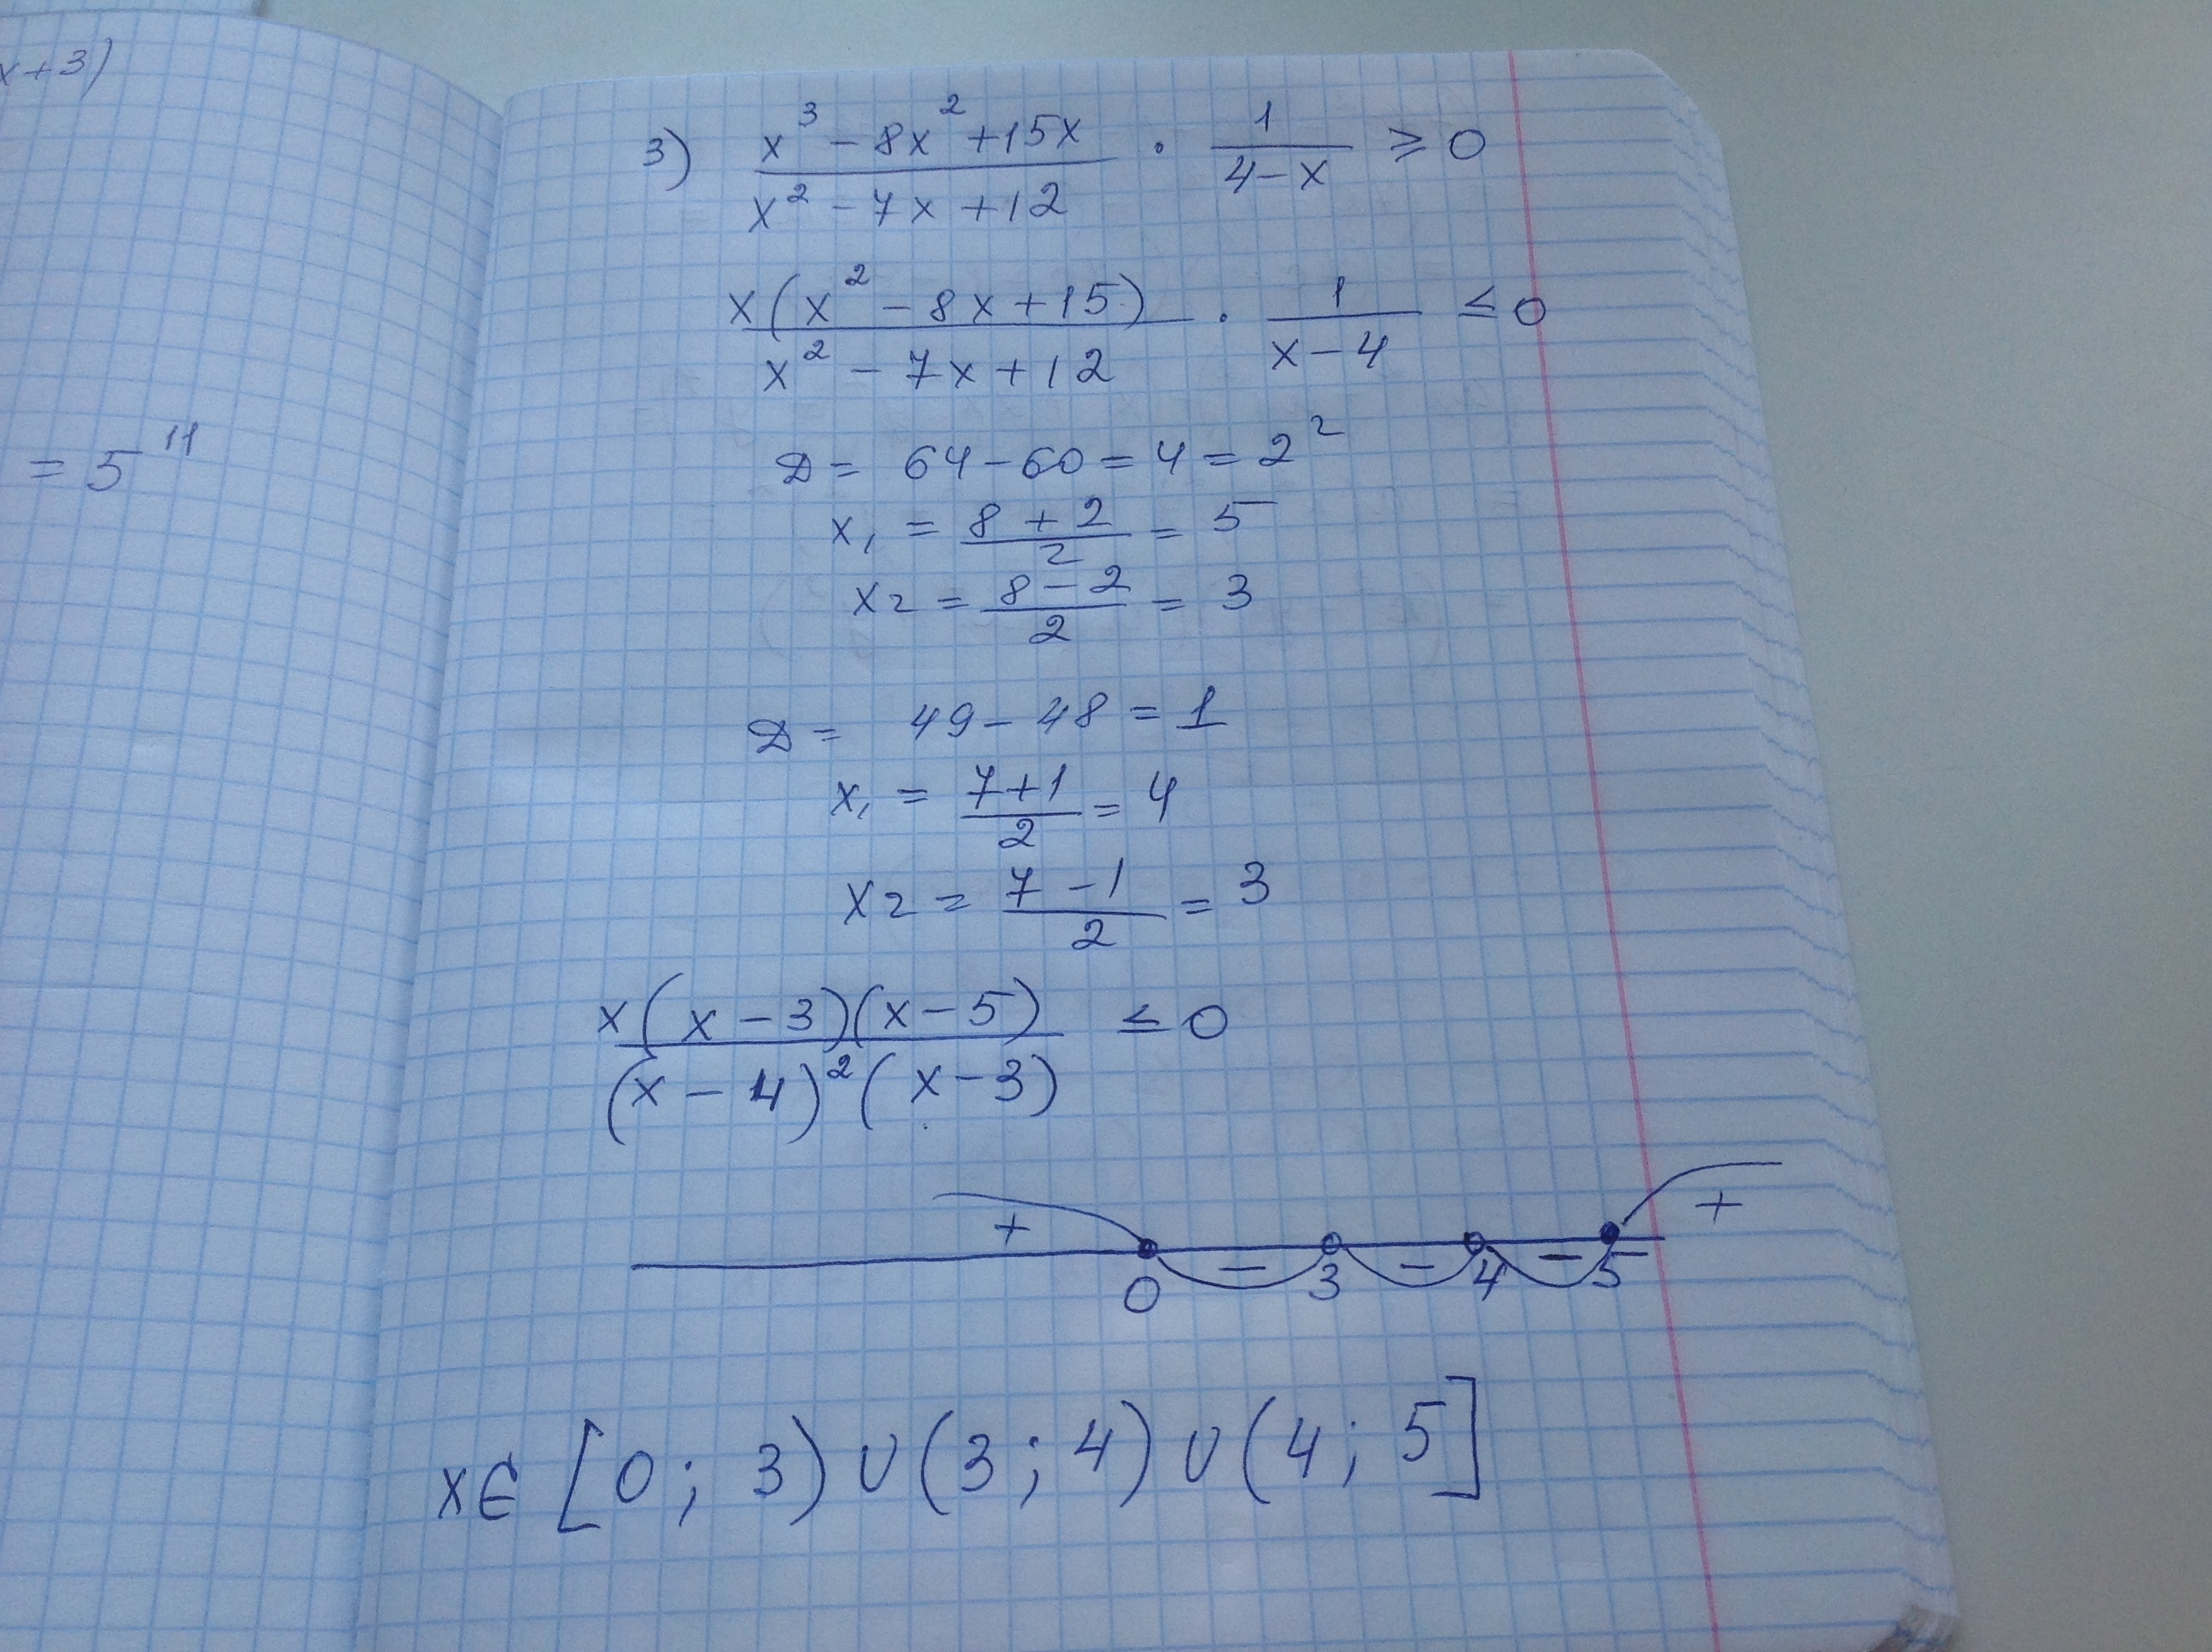 x+3)
= 5¹¹
3) (x³ - 8x² + 15x)/(x² - 7x + 12) · 1/(4 - x) ≥ 0
x(x² - 8x + 15)/(x² - 7x + 12) · 1/(x - 4) ≤ 0
D = 64 - 60 = 4 = 2²
x₁ = (8 + 2)/2 = 5
x₂ = (8 - 2)/2 = 3
D = 49 - 48 = 1
x₁ = (7 + 1)/2 = 4
x₂ = (7 - 1)/2 = 3
x(x - 3)(x - 5)/((x - 4)²(x - 3)) ≤ 0
+ - - - +
0 3 4 5
x ∈ [0; 3) ∪ (3; 4) ∪ (4; 5]